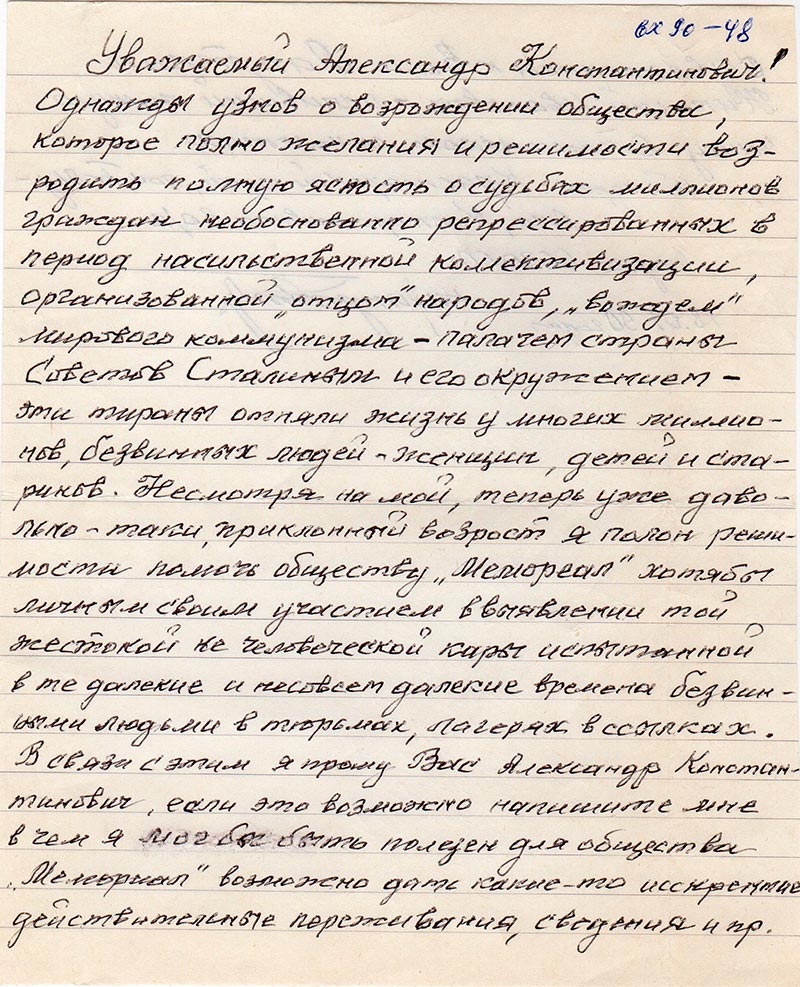 вх 90-48
Уважаемый Александр Константинович!
Однажды узнов о возрождении общества,
которое полно желания и решимости воз-
родить полную ясность о судьбах миллионов
граждан необоснованно репрессированных в
период насильственной коллективизации,
организованной „отцом" народов, „вождем"
мирового коммунизма - палачем страны
Советов Сталиным и его окружением -
эти тираны отняли жизнь у многих миллио-
нов, безвинных людей - женщин, детей и ста-
риков. Несмотря на мой, теперь уже даво-
льно-таки, приклонный возрост я полон реши-
мости помочь обществу „Мемореал" хотябы
личным своим участием в выявлении той
жестокой не человеческой кары испытанной
в те далекие и несовсем далекие времена безвин-
ными людьми в тюрьмах, лагерях в ссылках.
В связи с этим я прошу Вас Александр Констан-
тинович, если это возможно напишите мне
в чем я мог бы быть полезен для общества
„Мемориал" возможно дать какие-то исскрение
действительные переживания, сведения и пр.